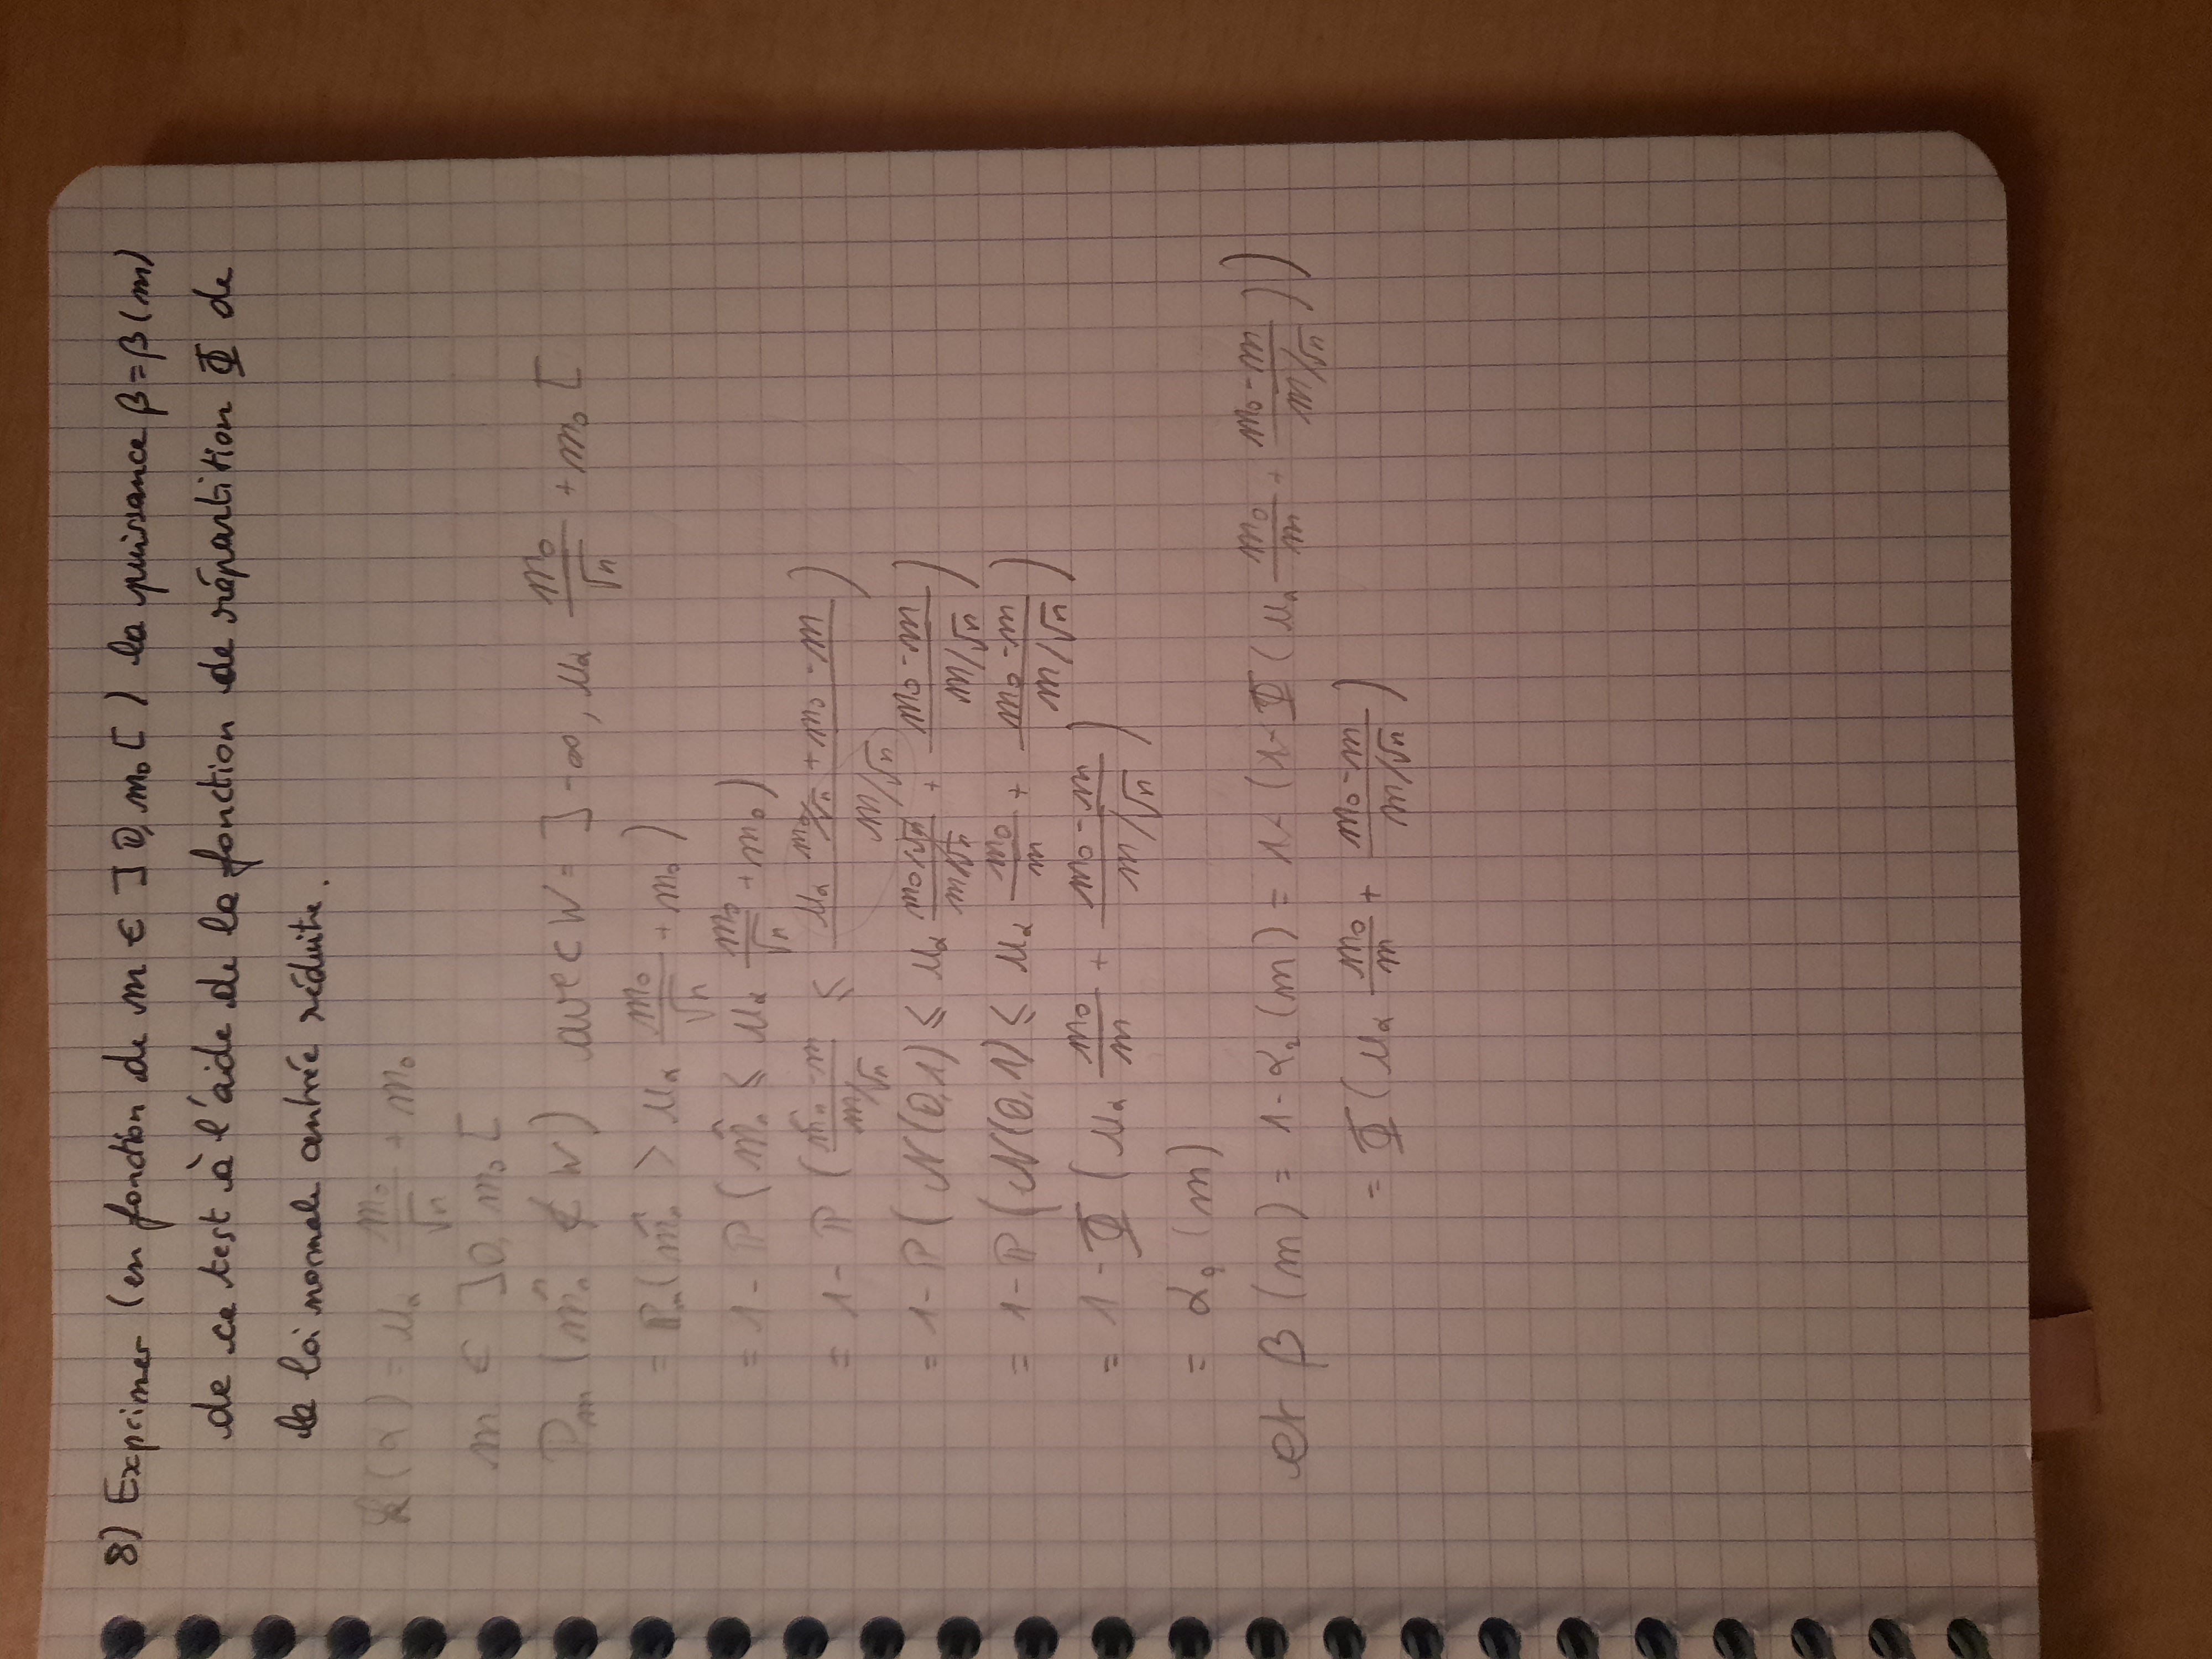 8) Exprimer (en fonction de m ∈ ]0, m₀[ ) la puissance β = β(m)
de ce test à l'aide de la fonction de répartition Φ de
la loi normale centrée réduite.
k(α) = uα m₀/√n + m₀
m ∈ ]0, m₀[
ℙm (m̂n ∉ W) avec W = ]-∞, uα m₀/√n + m₀[
= ℙm(m̂n > uα m₀/√n + m₀)
= 1 - ℙ(m̂n ≤ uα m₀/√n + m₀)
= 1 - ℙ((m̂n - m)/(m/√n) ≤ (uα m₀/√n + m₀ - m)/(m/√n))
= 1 - ℙ(N(0,1) ≤ uα (m₀/√n)/(m/√n) + (m₀ - m)/(m/√n))
= 1 - ℙ(N(0,1) ≤ uα m₀/m + (m₀ - m)/(m/√n))
= 1 - Φ(uα m₀/m + (m₀ - m)/(m/√n))
= α₂(m)
et β(m) = 1 - α₂(m) = 1 - (1 - Φ(uα m₀/m + (m₀ - m)/(m/√n)))
= Φ(uα m₀/m + (m₀ - m)/(m/√n))